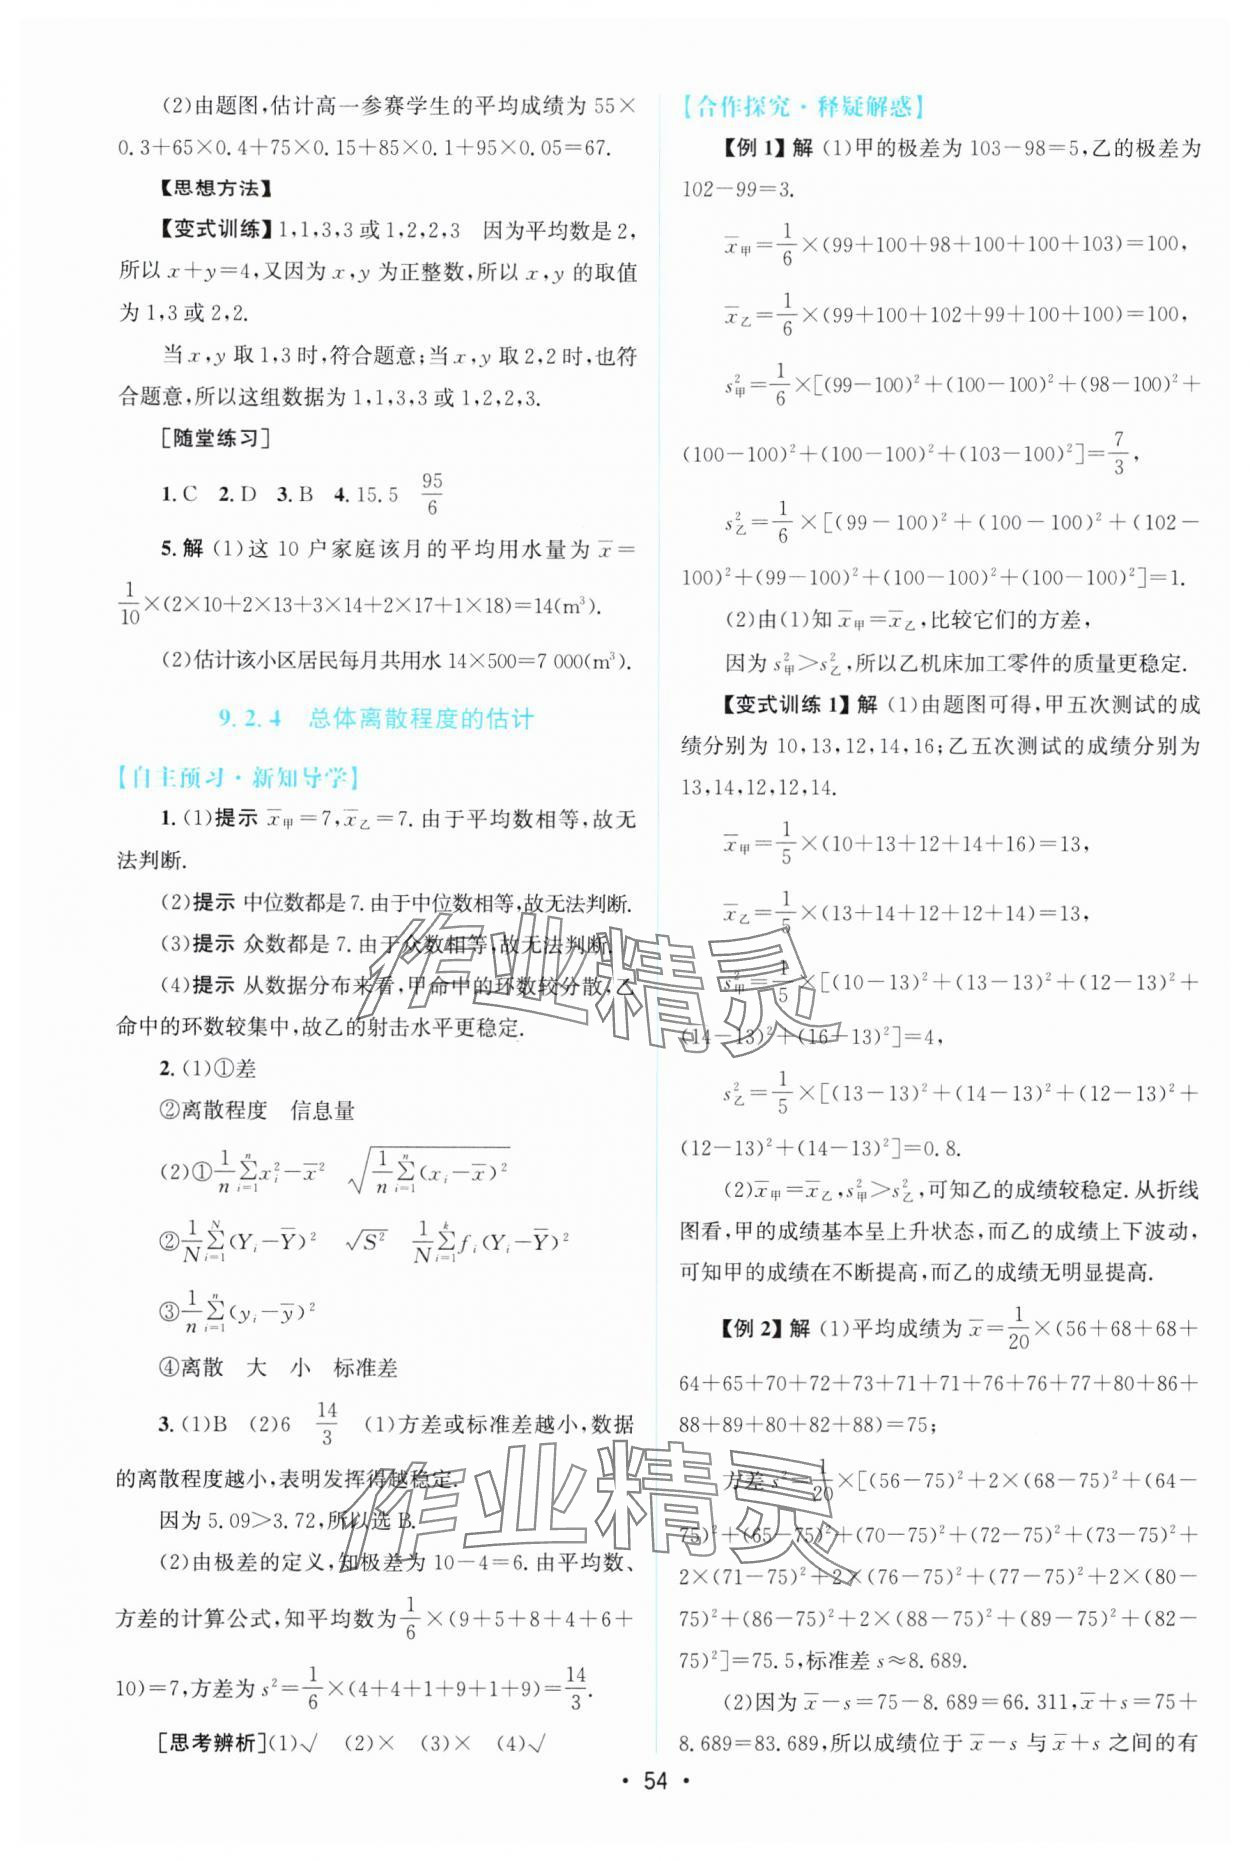 (2)由题图,估计高一参赛学生的平均成绩为 55×
0.3+65×0.4+75×0.15+85×0.1+95×0.05=67.
【思想方法】
【变式训练】1,1,3,3 或 1,2,2,3 因为平均数是 2,
所以 x+y=4,又因为 x,y 为正整数,所以 x,y 的取值
为 1,3 或 2,2.
当 x,y 取 1,3 时,符合题意;当 x,y 取 2,2 时,也符
合题意,所以这组数据为 1,1,3,3 或 1,2,2,3.
[随堂练习]
1.C 2.D 3.B 4.15.5 95/6
5.解 (1)这 10 户家庭该月的平均用水量为 x̄=
1/10×(2×10+2×13+3×14+2×17+1×18)=14(m³).
(2)估计该小区居民每月共用水 14×500=7 000(m³).
9.2.4 总体离散程度的估计
【自主预习·新知导学】
1.(1)提示 x̄甲=7,x̄乙=7.由于平均数相等,故无
法判断.
(2)提示 中位数都是 7.由于中位数相等,故无法判断.
(3)提示 众数都是 7.由于众数相等,故无法判断.
(4)提示 从数据分布来看,甲命中的环数较分散,乙
命中的环数较集中,故乙的射击水平更稳定.
2.(1)①差
②离散程度 信息量
(2)①1/n ∑ⁿᵢ₌₁ xᵢ²−x̄² √(1/n ∑ⁿᵢ₌₁ (xᵢ−x̄)²)
②1/N ∑ᴺᵢ₌₁ (Yᵢ−Ȳ)² √S² 1/N ∑ᵏᵢ₌₁ fᵢ(Yᵢ−Ȳ)²
③1/n ∑ⁿᵢ₌₁ (yᵢ−ȳ)²
④离散 大 小 标准差
3.(1)B (2)6 14/3 (1)方差或标准差越小,数据
的离散程度越小,表明发挥得越稳定.
因为 5.09>3.72,所以选 B.
(2)由极差的定义,知极差为 10−4=6.由平均数、
方差的计算公式,知平均数为 1/6×(9+5+8+4+6+
10)=7,方差为 s²=1/6×(4+4+1+9+1+9)=14/3.
[思考辨析](1)√ (2)× (3)× (4)√
【合作探究·释疑解惑】
【例 1】解 (1)甲的极差为 103−98=5,乙的极差为
102−99=3.
x̄甲=1/6×(99+100+98+100+100+103)=100,
x̄乙=1/6×(99+100+102+99+100+100)=100,
s²甲=1/6×[(99−100)²+(100−100)²+(98−100)²+
(100−100)²+(100−100)²+(103−100)²]=7/3,
s²乙=1/6×[(99−100)²+(100−100)²+(102−
100)²+(99−100)²+(100−100)²+(100−100)²]=1.
(2)由(1)知 x̄甲=x̄乙,比较它们的方差,
因为 s²甲>s²乙,所以乙机床加工零件的质量更稳定.
【变式训练 1】解 (1)由题图可得,甲五次测试的成
绩分别为 10,13,12,14,16;乙五次测试的成绩分别为
13,14,12,12,14.
x̄甲=1/5×(10+13+12+14+16)=13,
x̄乙=1/5×(13+14+12+12+14)=13,
s²甲=1/5×[(10−13)²+(13−13)²+(12−13)²+
(14−13)²+(16−13)²]=4,
s²乙=1/5×[(13−13)²+(14−13)²+(12−13)²+
(12−13)²+(14−13)²]=0.8.
(2)x̄甲=x̄乙,s²甲>s²乙,可知乙的成绩较稳定.从折线
图看,甲的成绩基本呈上升状态,而乙的成绩上下波动,
可知甲的成绩在不断提高,而乙的成绩无明显提高.
【例 2】解 (1)平均成绩为 x̄=1/20×(56+68+68+
64+65+70+72+73+71+71+76+76+77+80+86+
88+89+80+82+88)=75;
方差 s²=1/20×[(56−75)²+2×(68−75)²+(64−
75)²+(65−75)²+(70−75)²+(72−75)²+(73−75)²+
2×(71−75)²+2×(76−75)²+(77−75)²+2×(80−
75)²+(86−75)²+2×(88−75)²+(89−75)²+(82−
75)²]=75.5,标准差 s≈8.689.
(2)因为 x̄−s=75−8.689=66.311,x̄+s=75+
8.689=83.689,所以成绩位于 x̄−s 与 x̄+s 之间的有
·54·
作业精灵
作业精灵